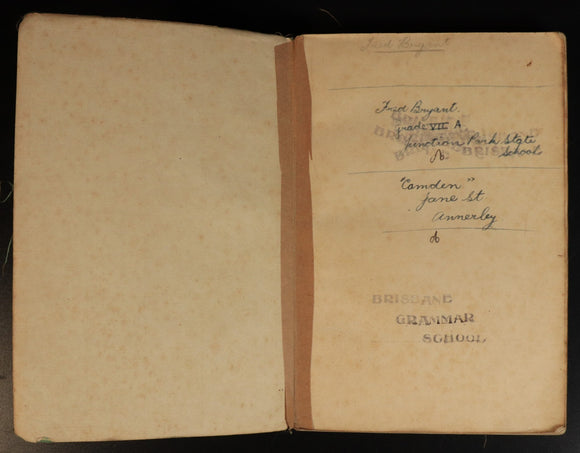 Fred Bryant
Fred Bryant.
grade VII A.
Junction Park State
School
"Camden"
Jane St
Annerley
BRISBANE
GRAMMAR
SCHOOL